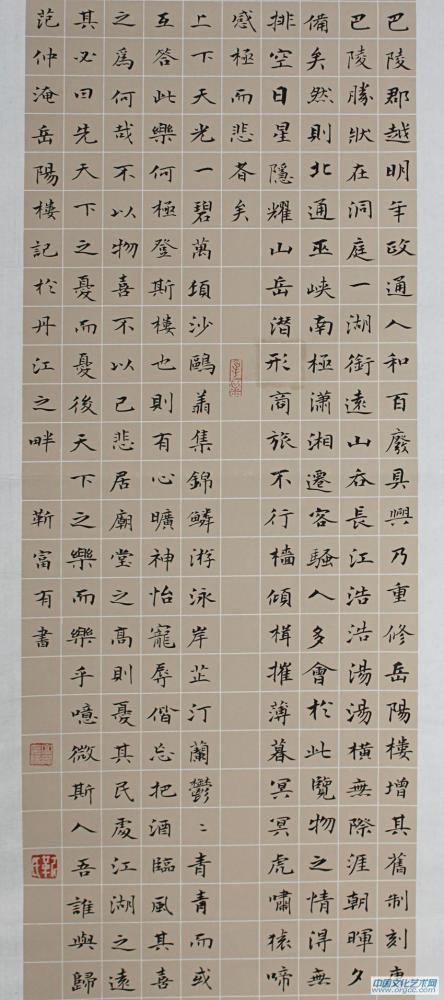 巴陵郡越明年政通人和百廢具興乃重修岳陽樓增其舊制刻唐
巴陵勝狀在洞庭一湖銜遠山吞長江浩浩湯湯橫無際涯朝暉夕
備矣然則北通巫峽南極瀟湘遷客騷人多會於此覽物之情得無
排空日星隱耀山岳潛形商旅不行檣傾楫摧薄暮冥冥虎嘯猿啼
感極而悲者矣
上下天光一碧萬頃沙鷗翔集錦鱗游泳岸芷汀蘭鬱〻青青而或
互答此樂何極登斯樓也則有心曠神怡寵辱偕忘把酒臨風其喜
之為何哉不以物喜不以己悲居廟堂之高則憂其民處江湖之遠
其必曰先天下之憂而憂後天下之樂而樂乎噫微斯人吾誰與歸
范仲淹岳陽樓記於丹江之畔 靳富有書
中国文化艺术网
www.orgcc.com